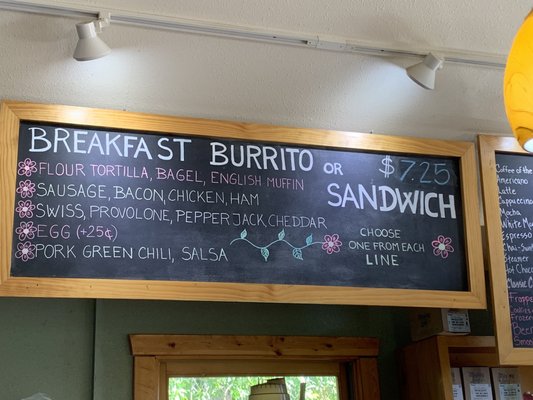 BREAKFAST BURRITO OR $7.25
SANDWICH
FLOUR TORTILLA, BAGEL, ENGLISH MUFFIN
SAUSAGE, BACON, CHICKEN, HAM
SWISS, PROVOLONE, PEPPER JACK, CHEDDAR
EGG (+25¢)
PORK GREEN CHILI, SALSA
CHOOSE
ONE FROM EACH
LINE
Coffee of the
Americano
Latte
Cappuccino
Mocha
White Mo
Espresso
Steamer
Hot Choco
Classic C
Frappe